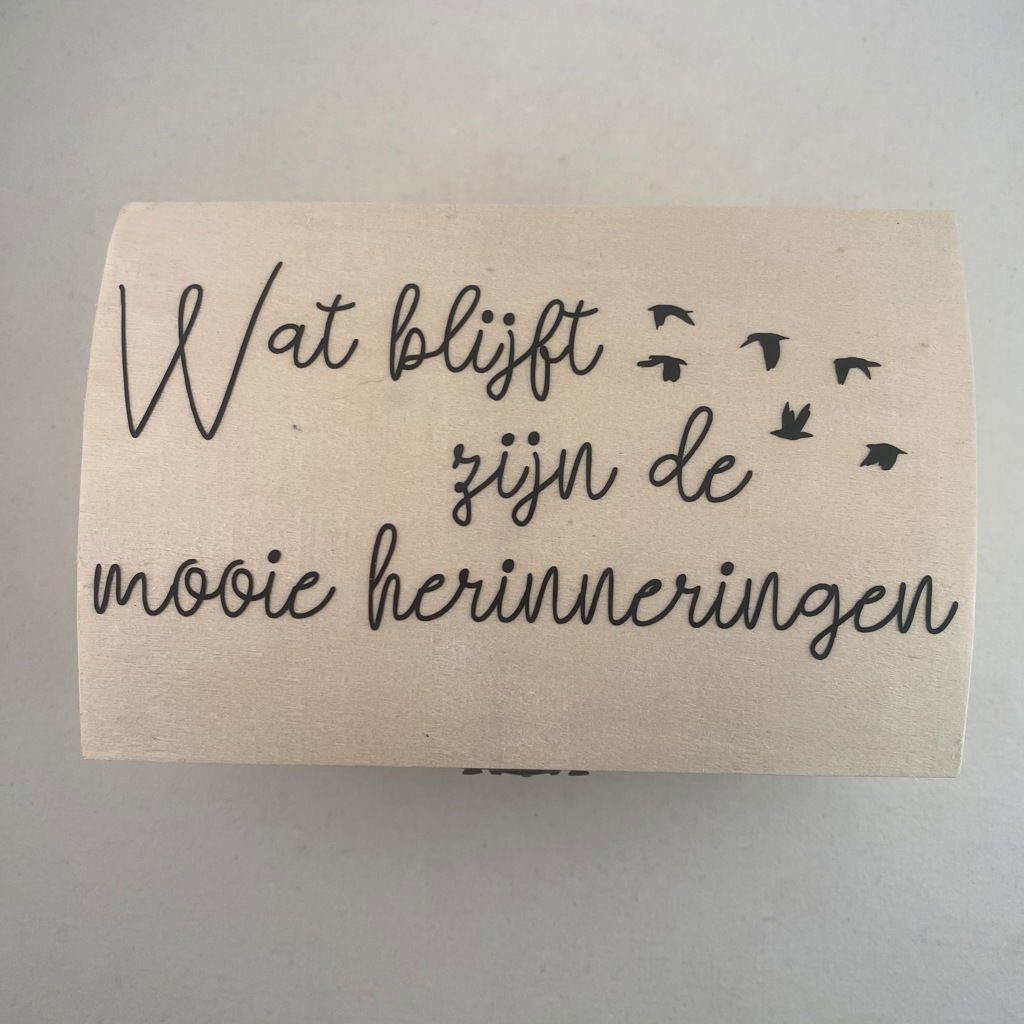 Wat blijft
zijn de
mooie herinneringen